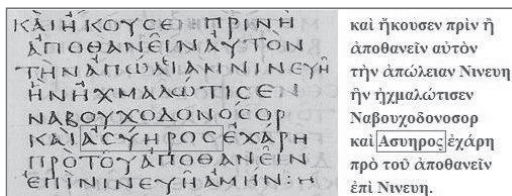 ΚΑΙΗΚΟΥϹΕΝ ΠΡΙΝΗ
ΑΠΟΘΑΝΕΙΝΑΥΤΟΝ
ΤΗΝΑΠΩΛΙΑΝΝΙΝΕΥΗ
ΗΝΗΧΜΑΛΩΤΙϹΕΝ
ΝΑΒΟΥΧΟΔΟΝΟϹΟΡ
ΚΑΙΑϹΥΗΡΟϹΕΧΑΡΗ
ΠΡΟΤΟΥΑΠΟΘΑΝΕΙΝ
ΕΠΙΝΙΝΕΥΗΑΜΗΝ:
καὶ ἤκουσεν πρὶν ἢ
ἀποθανεῖν αὐτὸν
τὴν ἀπώλειαν Νινευη
ἣν ᾐχμαλώτισεν
Ναβουχοδονοσορ
καὶ Ασυηρος ἐχάρη
πρὸ τοῦ ἀποθανεῖν
ἐπὶ Νινευη.